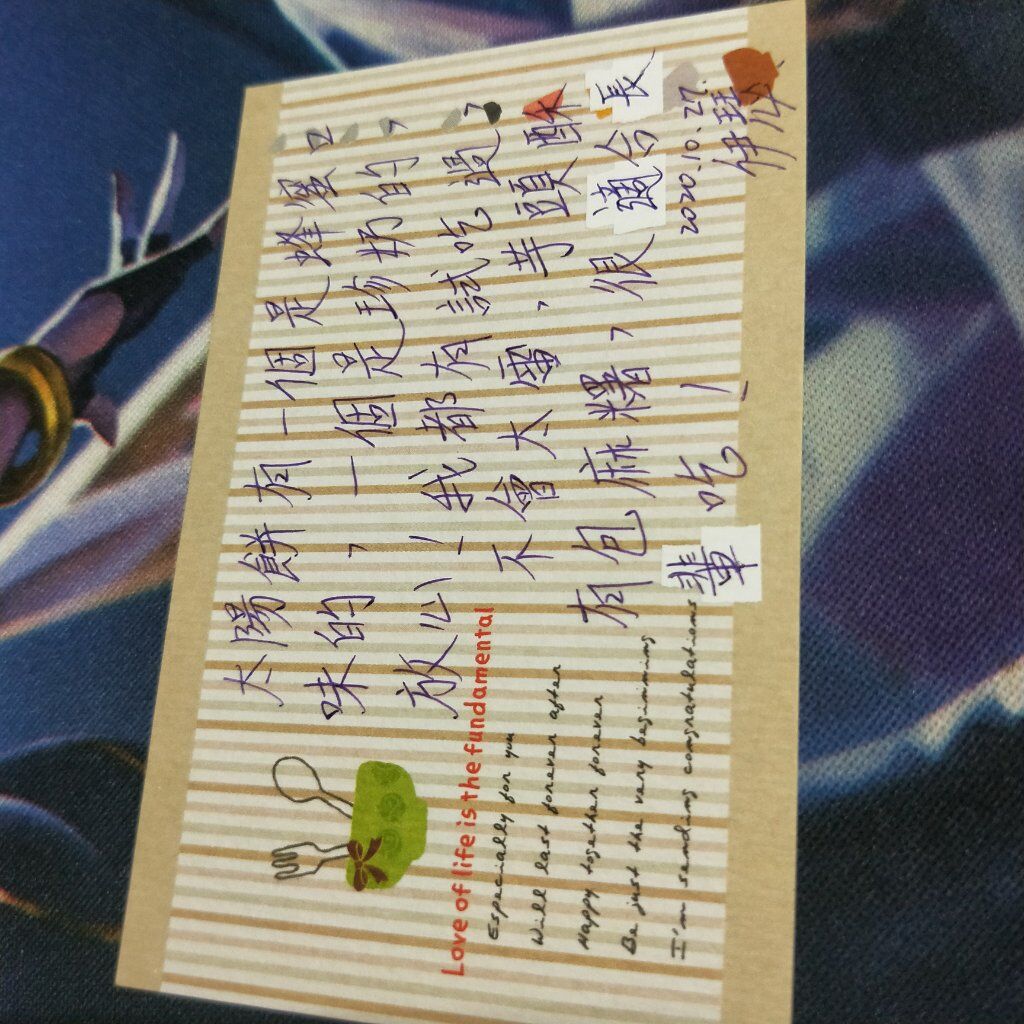 太陽餅有一個是蜂蜜口
味的,一個是珍奶的,
放心!我都有試吃過,
不會太雷,芋頭酥
有包麻糬,很適合長
輩吃!
2020.10.27.
Love of life is the fundamental
Especially for you
Will last forever after
Happy together forever
Be just the very beginning
I'm sending congratulations